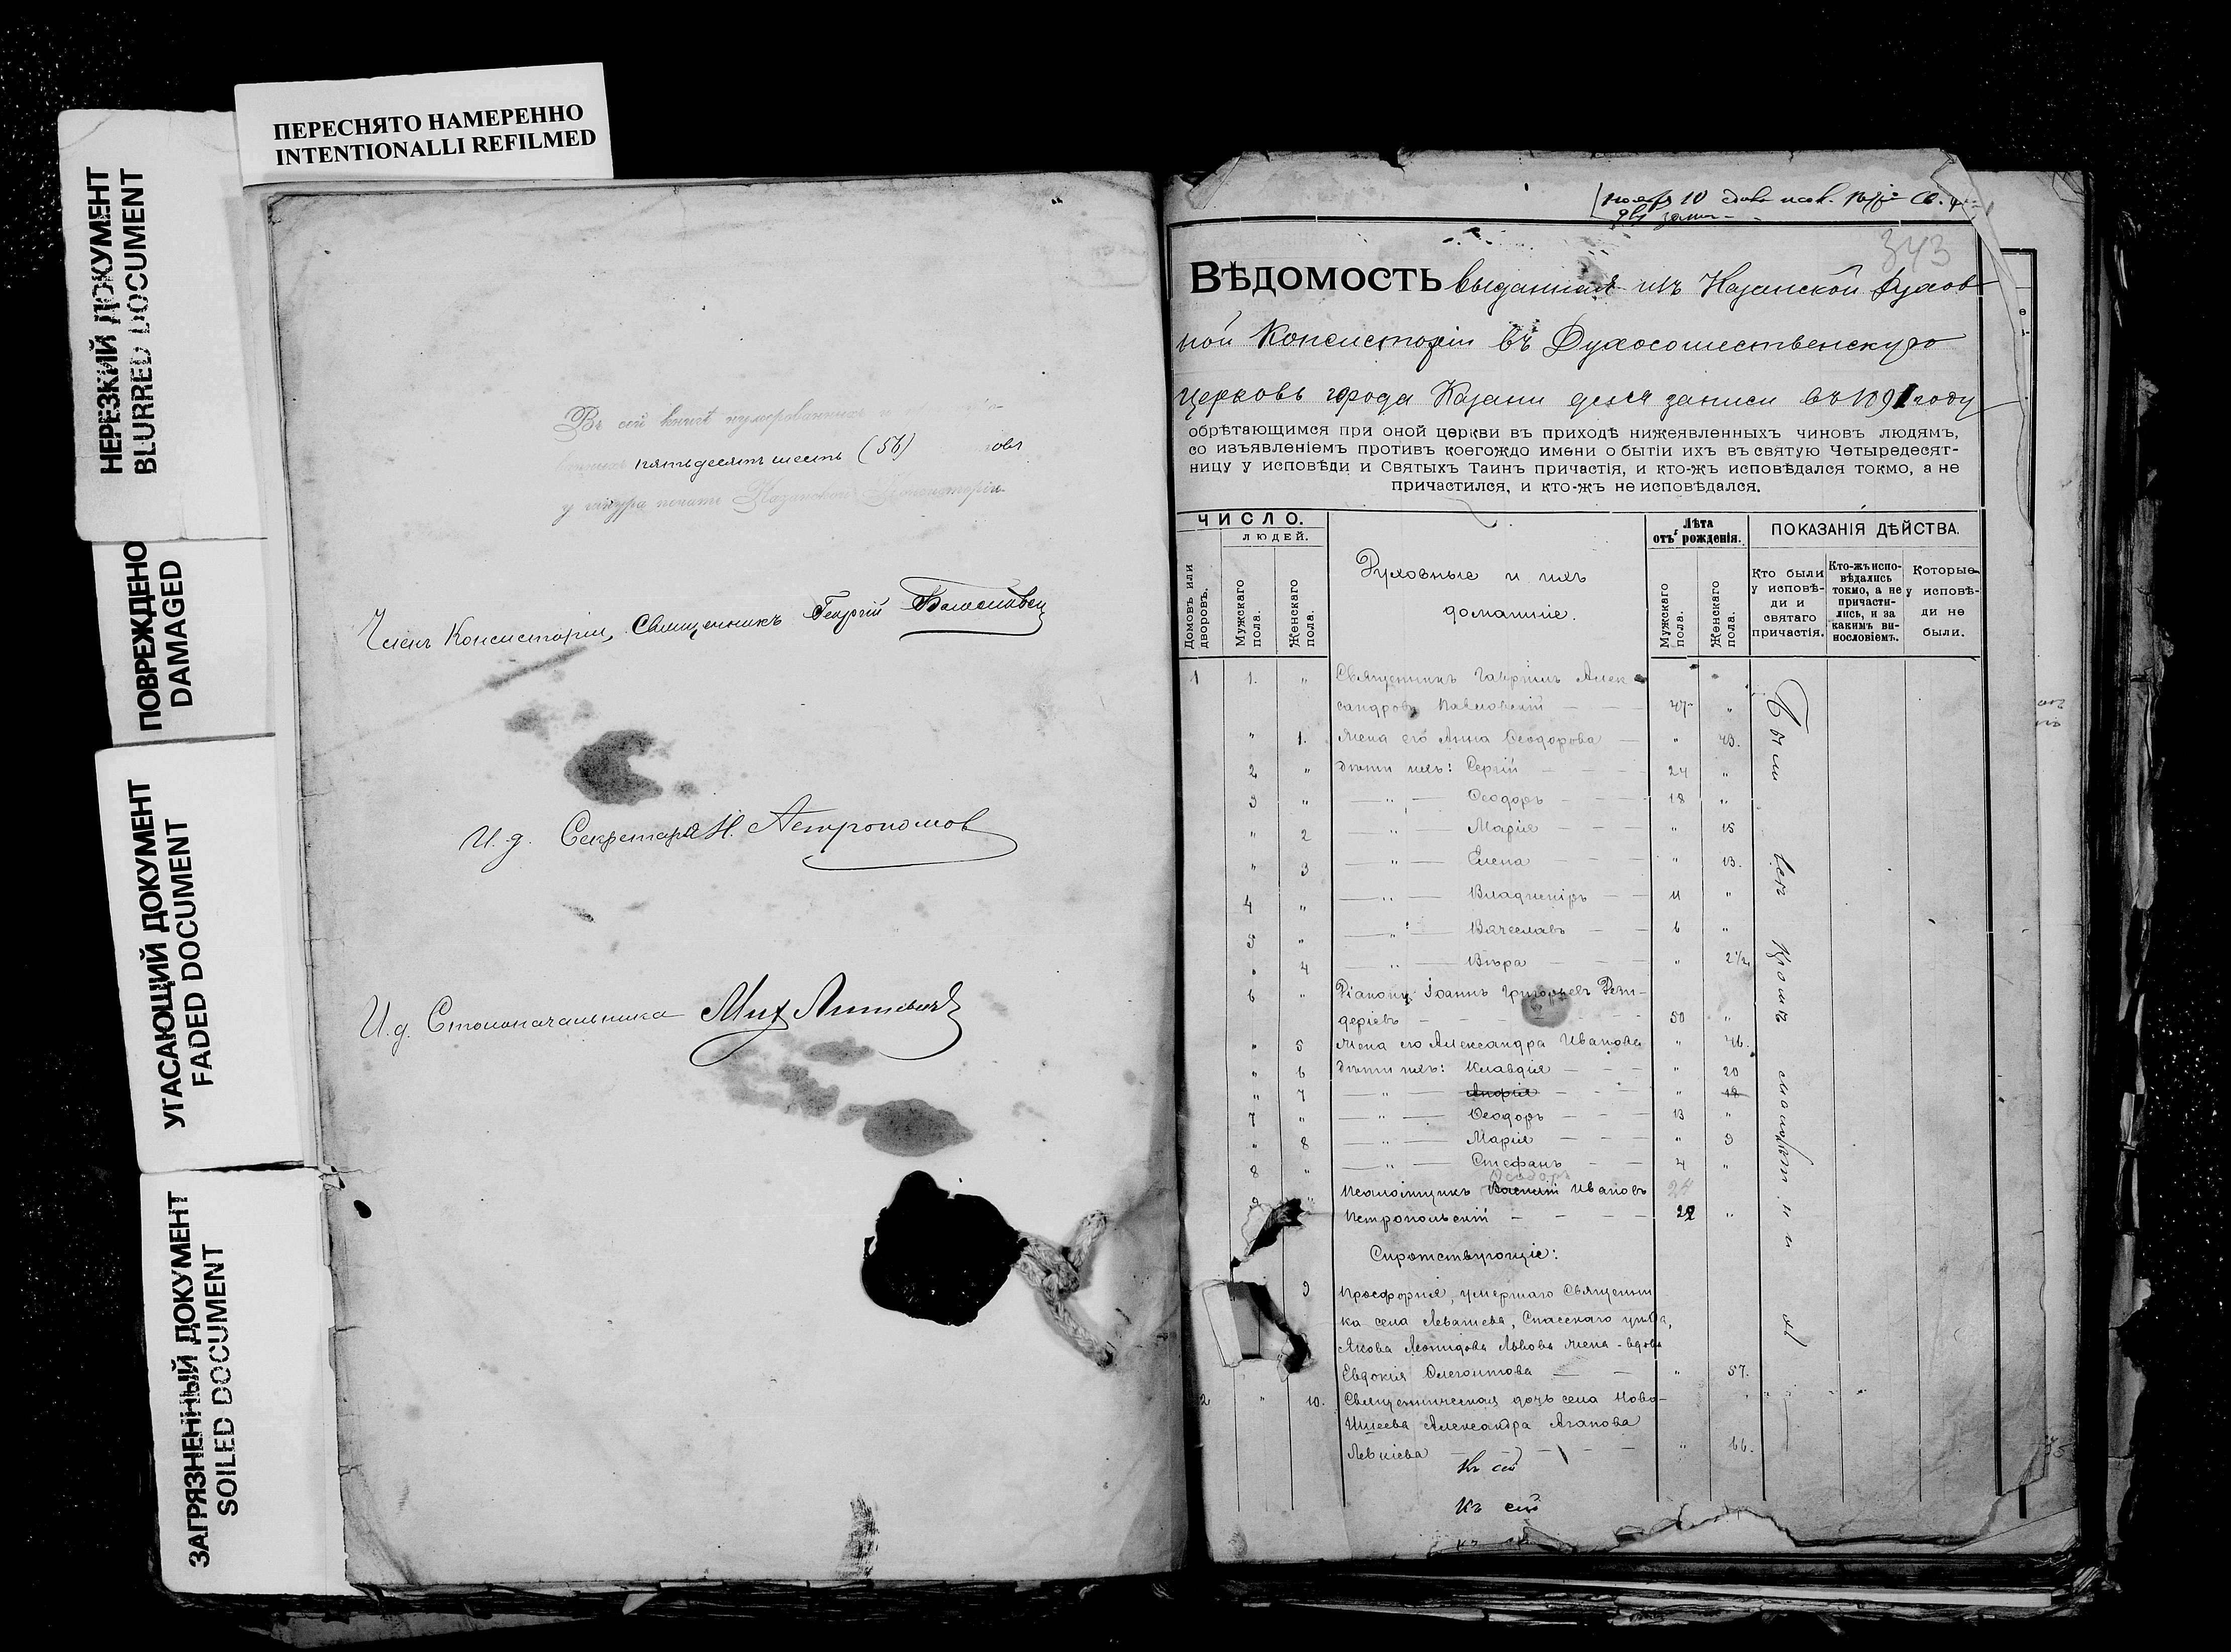 ПЕРЕСНЯТО НАМЕРЕННО
INTENTIONALLI REFILMED
НЕРЕЗКИЙ ДОКУМЕНТ
BLURRED DOCUMENT
ПОВРЕЖДЕНО
DAMAGED
УГАСАЮЩИЙ ДОКУМЕНТ
FADED DOCUMENT
ЗАГРЯЗНЕННЫЙ ДОКУМЕНТ
SOILED DOCUMENT
Въ сей книгѣ нумерованныхъ и
пятьдесятъ шесть (56) овъ
у шнура печать Казанской Консисторіи
Членъ Консисторіи, Священникъ Георгій
И. д. Секретаря Н. Астрономов
И. д. Столоначальника Мих
343
ВѢДОМОСТЬ выданная изъ Казанской Духов
ной Консисторіи въ Духосошественскую
церковь города Казани для записи въ 1891 году
обрѣтающимся при оной церкви въ приходѣ нижеявленныхъ чиновъ людямъ,
со изъявленіемъ противъ коегождо имени о бытіи ихъ въ святую Четыредесят-
ницу у исповѣди и Святыхъ Таинъ причастія, и кто-жъ исповѣдался токмо, а не
причастился, и кто-жъ не исповѣдался.
ЧИСЛО.
ЛЮДЕЙ.
Домовъ или дворовъ.
Мужскаго пола.
Женскаго пола.
Духовные и ихъ
домашніе.
Лѣта
отъ рожденія.
Мужскаго пола.
Женскаго пола.
ПОКАЗАНІЯ ДѢЙСТВА.
Кто были у исповѣ-ди и святаго причастія.
Кто-жъ испо-вѣдались токмо, а не причасти-лись, и за какимъ ви-нословіемъ.
Которые у исповѣ-ди не были.
1 1. " Священникъ Гавріилъ Алек
сандровъ Павловскій — — 47 "
" 1. Жена его Анна Ѳеодорова — " 43.
2 " Дѣти ихъ: Сергій — — — 24 "
3 " — " — Ѳеодоръ — — — 18 "
" 2 — " — Марія — — — " 15
" 3 — " — Елена — — — " 13.
4 " — " — Владиміръ — — 11 "
5 " — " — Вячеславъ — — 6 "
" 4 — " — Вѣра — — — " 2½
6 " Діаконъ Іоаннъ Григорьевъ
50 "
" 5 Жена его Александра Иванова " 46.
" 6 Дѣти ихъ: Клавдія — — — " 20
" 7 — " —
7 " — " — Ѳеодоръ — — — 13 "
" 8 — " — Марія — — — " 9
8 " — " — Стефанъ — — 4 "
Ѳеодоръ
9 " Псаломщикъ Василій Ивановъ 24
Петропольскій — — — — 22 "
Сиротствующіе:
9 Просфорня, умершаго Священни
ка села Левашева, Спасскаго уѣзда,
Якова Леонидова Львова жена - вдова
Евдокія — — " 57.
2 " 10. Священническая дочь села Ново-
Александра Агапова
Левкіева — — — — " 66.
Къ сей
Къ сей
Были всѣ кромѣ